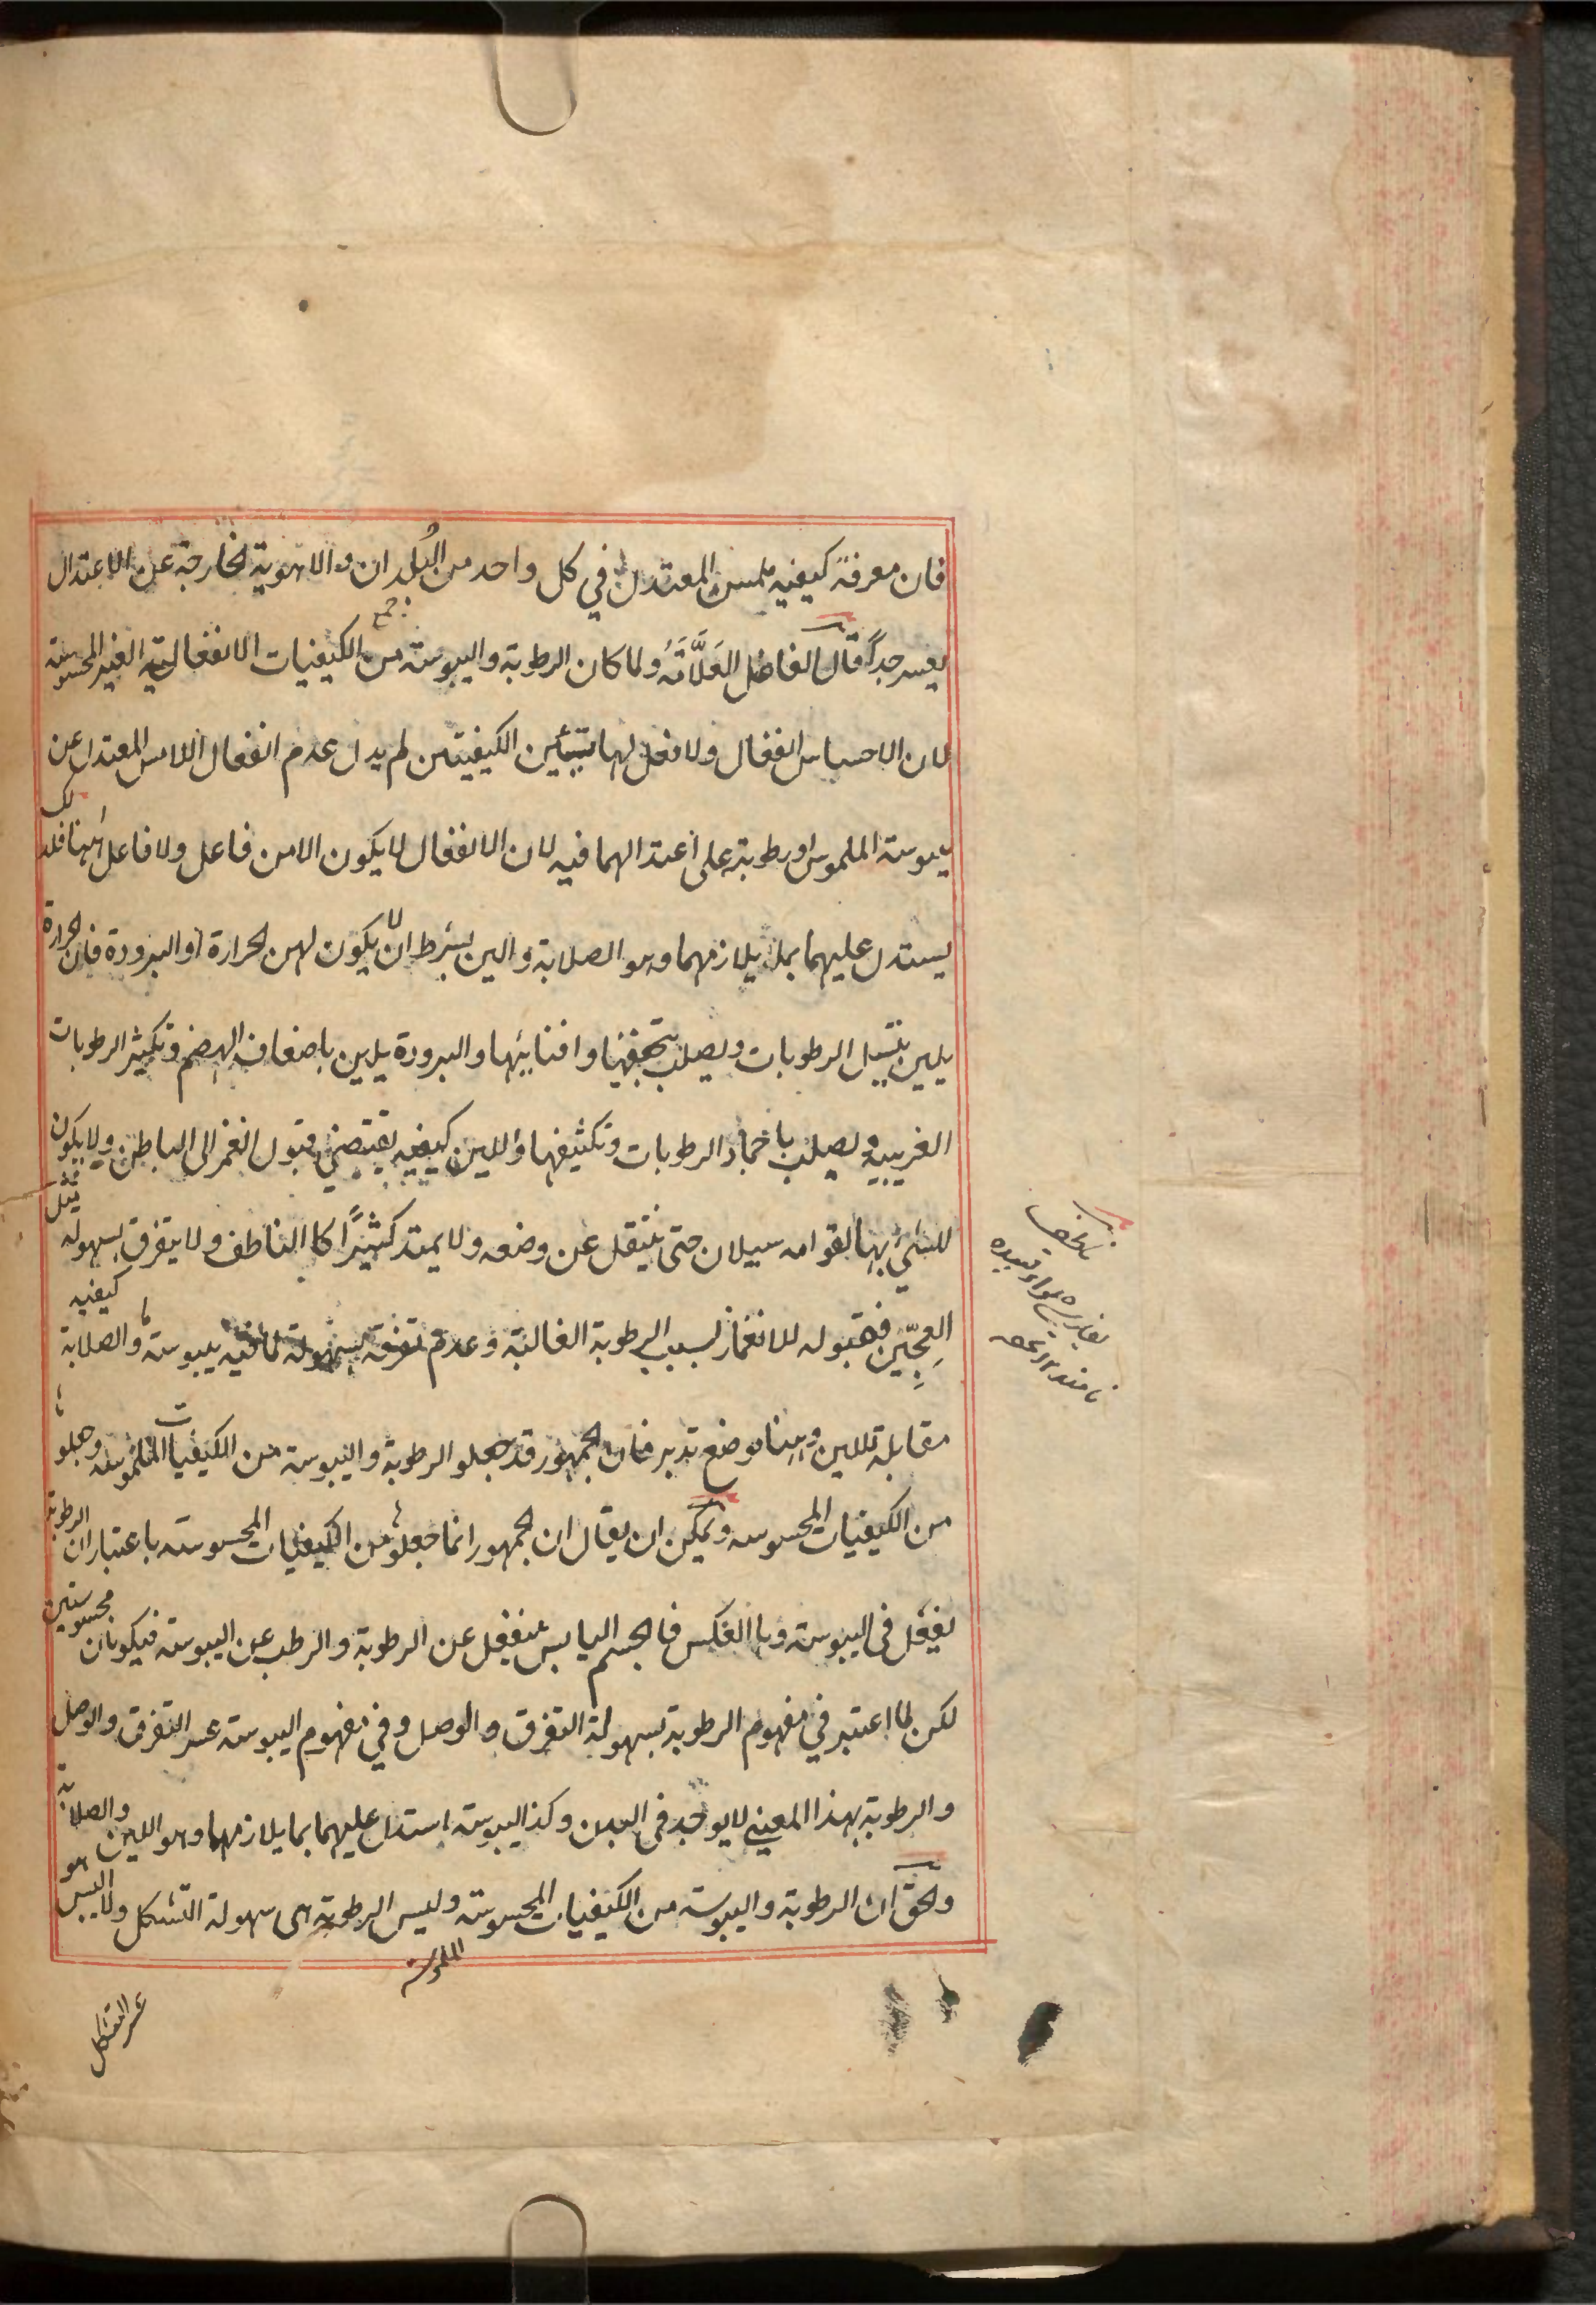 فان معرفة كيفيه ملمس المعتدل في كل واحد من البُلدان والاهوية الخارجة عن الاعتدال
يعسر جداً قال الفاضل العَلَّامَهُ ولما كان الرطوبة واليبوسته من الكيفيات الانفعالية الغير المحسوسته
لان الاحساس انفعال ولا فعل لهاتين الكيفيتين لم يدل عدم انفعال اللامس المعتدل عن
يبوسته الملموس او رطوبته على اعتدالهما فيه لان الانفعال لا يكون الا من فاعل ولا فاعل ههنا فلذلك
يستدل عليهما بما يلازمهما وهو الصلابة والين بشرط ان لا يكون لهن الحرارة او البرودة فان الحرارة
يلين بتسيل الرطوبات ويصلب بتجفيفها وافنائها والبرودة يلين باضعاف الهضم وتكثير الرطوبات
الغريبيه ويصلب باخماد الرطوبات وتكثيفها واللين كيفيه يقتضي قبول الغمز الى الباطن ويكون
للشيء بها القوامه سيلان حتى ينتقل عن وضعه ولا يمتد كثيرًا كالناطف ولا يتفرق بسهوله مثل
العجين فقبوله للانغماز بسبب الرطوبة الغالبة وعدم تفرقه بسهولة لما فيه يبوسته والصلابة كيفيه
مقابلة للين وههنا موضع تدبر فان الجمهور قد جعلو الرطوبة واليبوسته من الكيفيات الملموسه وجعلوها
من الكيفيات المحسوسه ويمكن ان يقال ان الجمهور انما جعلوها من الكيفيات المحسوسته باعتبار ان الرطوبة
يفعل في اليبوسته وبالعكس فالجسم اليابس ينفعل عن الرطوبة والرطب عن اليبوسته فيكونان محسوستين
لكن لما اعتبر في مفهوم الرطوبة سهولة التفرق والوصل وفي مفهوم اليبوسته عسر التفرق والوصل
والرطوبة بهذا المعنى لا يوجد في البدن وكذا اليبوسته استدل عليهما بما يلازمهما وهو اللين والصلابة
والحق ان الرطوبة واليبوسته من الكيفيات المحسوسته وليس الرطوبة هى سهولة التشكل ولا اليبس هو
الملموسته
عسر التشكل